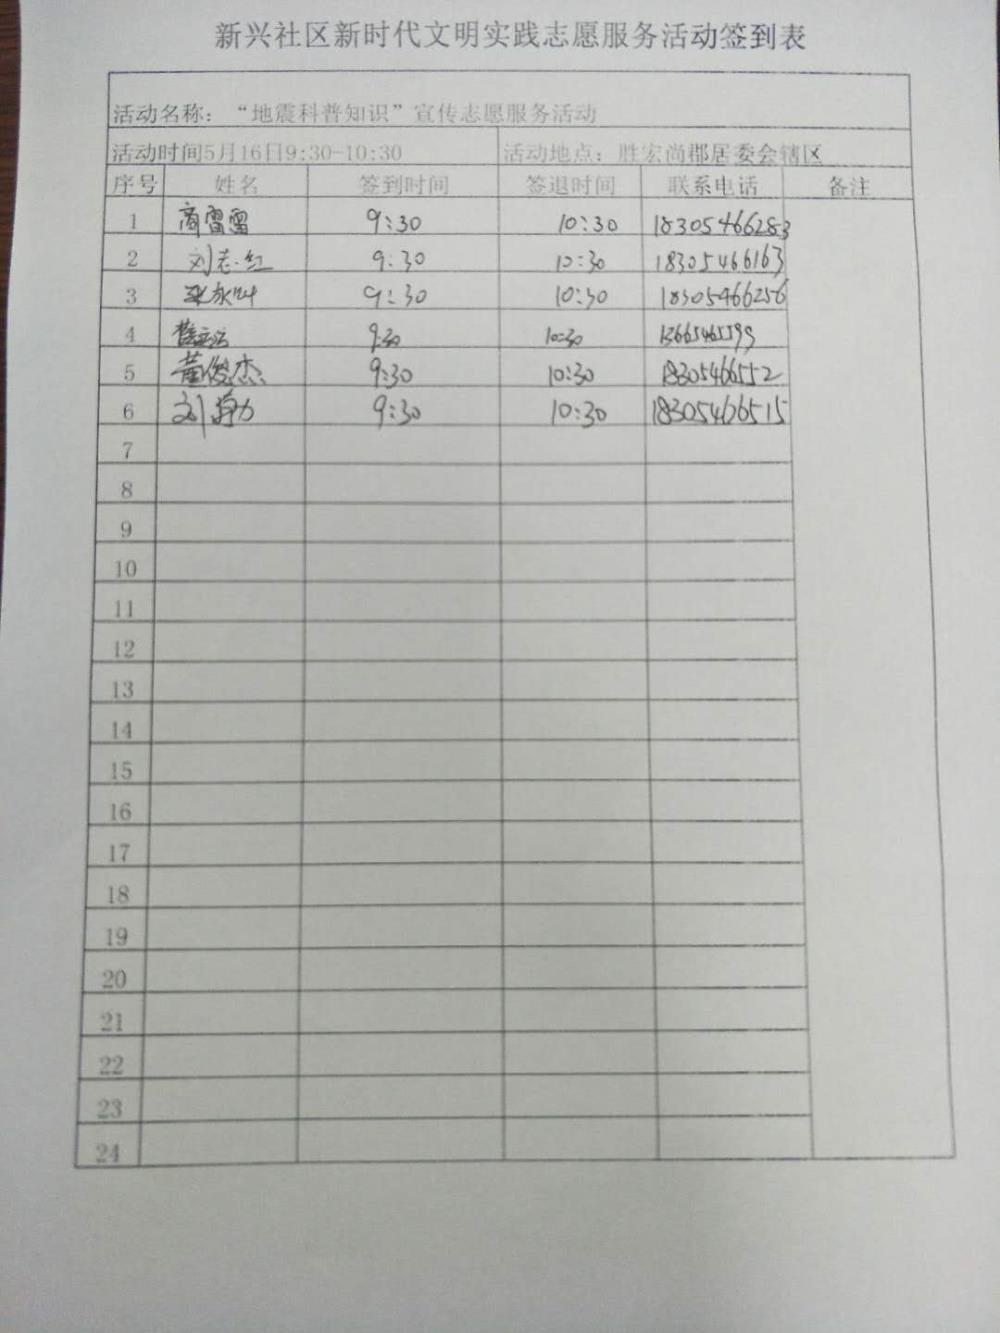 新兴社区新时代文明实践志愿服务活动签到表
活动名称：“地震科普知识”宣传志愿服务活动
活动时间5月16日9:30-10:30 活动地点：胜宏尚郡居委会辖区
序号 姓名 签到时间 签退时间 联系电话 备注
1 商雷雷 9:30 10:30 18305466283
2 刘志红 9:30 10:30 18305466163
3 9:30 10:30 18305466256
4 9:30 10:30 13665465599
5 黄俊杰 9:30 10:30 18305466552
6 刘 9:30 10:30 18305466515
7
8
9
10
11
12
13
14
15
16
17
18
19
20
21
22
23
24